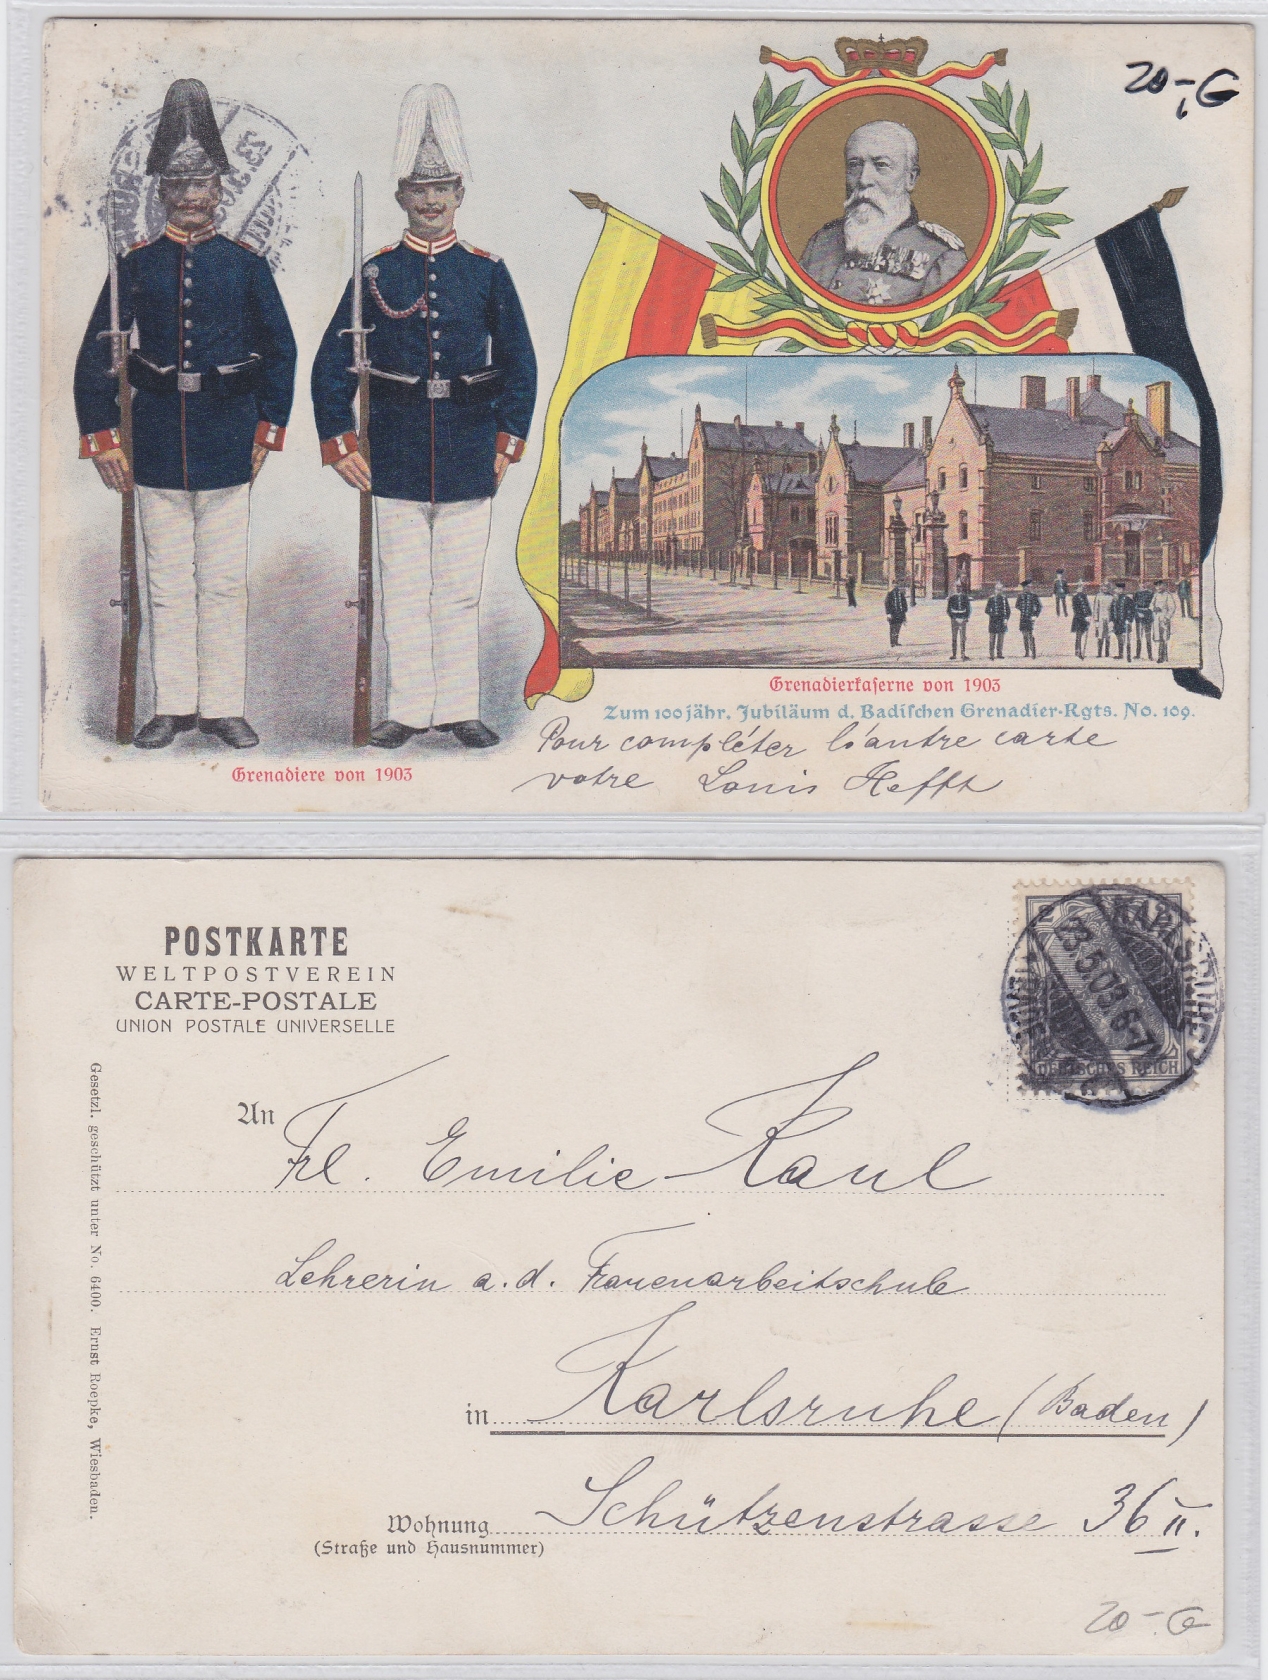 20-, G
Grenadiere von 1903
Grenadierkaserne von 1903
Zum 100jähr. Jubiläum d. Badischen Grenadier-Rgts. No. 109.
Pour compléter l'autre carte
votre Louis Hefft
POSTKARTE
WELTPOSTVEREIN
CARTE-POSTALE
UNION POSTALE UNIVERSELLE
2
KARLSRUHE
3.5.03. 6-7
DEUTSCHES REICH
Gesetzl. geschützt unter No. 6400. Ernst Roepke, Wiesbaden.
An Frl. Emilie Kaul
Lehrerin a. d. Frauenarbeitschule
in Karlsruhe (Baden)
Wohnung Schützenstrasse 36 II.
(Straße und Hausnummer)
20-. G